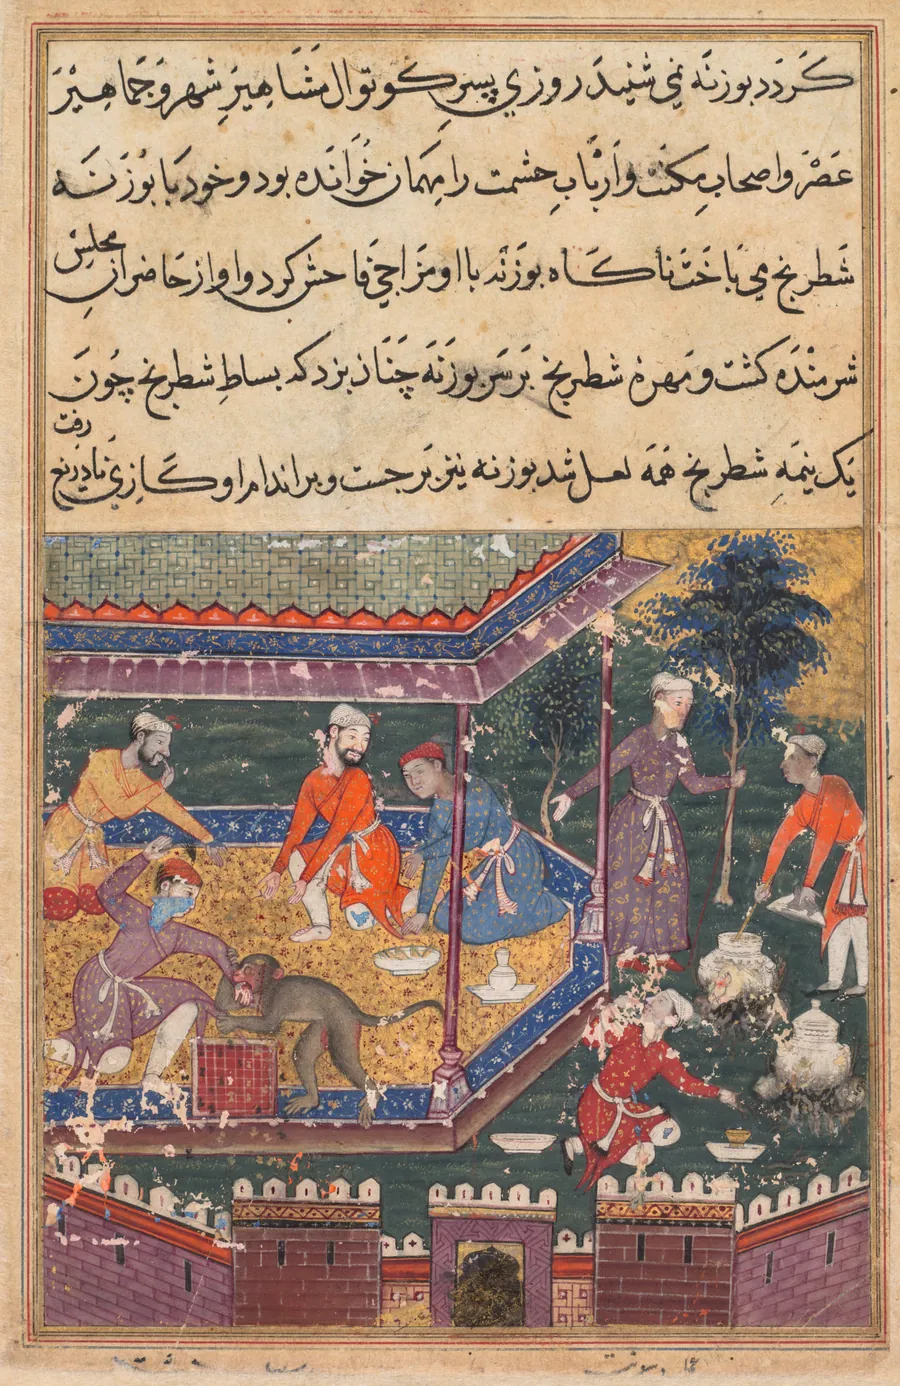 کردد بوزنه نمی شنید روزی پسر کوتوال مشاهیرِ شهر و جماهیر
عصر و اصحابِ مکنت و اربابِ حشمت را مهمان خوانده بود و خود با بوزنه
شطرنج می باخت ناکاه بوزنه با او مزاجی فاحش کرد و او از حاضرانِ مجلس
شرمنده کشت و مهرهٔ شطرنج بر سر بوزنه چنان بزد که بساطِ شطرنج چون
یک نیمهِ شطرنج همه لعل شد بوزنه نیز برجست و بر اندام او کازی نادر رفت